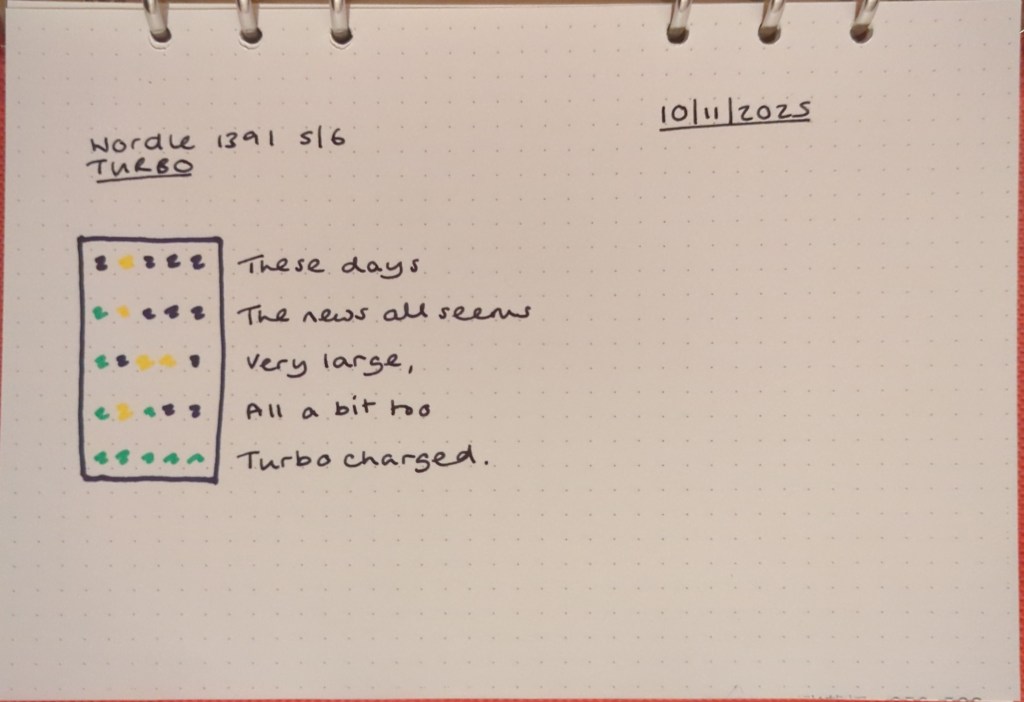 10/11/2025
Wordle 1391 5/6
TURBO
These days
The news all seems
Very large,
All a bit too
Turbo charged.